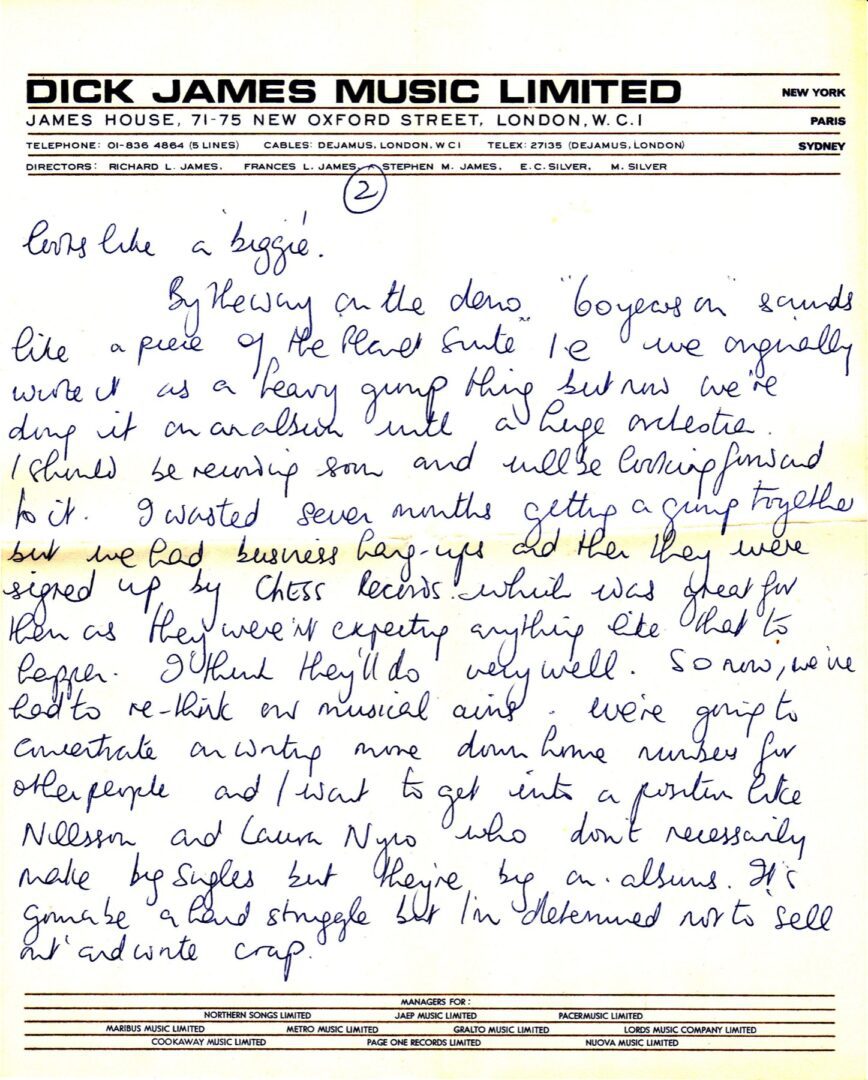 DICK JAMES MUSIC LIMITED
NEW YORK
JAMES HOUSE, 71-75 NEW OXFORD STREET, LONDON, W.C.1
PARIS
TELEPHONE: 01-836 4864 (5 LINES) CABLES: DEJAMUS, LONDON, WC1 TELEX: 27135 (DEJAMUS, LONDON)
SYDNEY
DIRECTORS: RICHARD L. JAMES, FRANCES L. JAMES, STEPHEN M. JAMES, E.C. SILVER, M. SILVER
2
looks like a 'biggie'.
By the way on the demo "60 years on" sounds
like a piece of "the Planet Suite" i.e we originally
wrote it as a heavy group thing but now we're
doing it on an album with a huge orchestra.
I should be recording soon and will be looking forward
to it. I wasted seven months getting a group together
but we had business hang-ups and then they were
signed up by Chess Records - which was great for
them as they weren't expecting anything like that to
happen. I think they'll do very well. So now, we've
had to re-think our musical aims. We're going to
concentrate on writing more down home numbers for
other people and I want to get into a position like
Nillsson and Laura Nyro who don't necessarily
make big singles but they're big on albums. It's
gonna be a hard struggle but I'm determined not to 'sell
out' and write crap.
MANAGERS FOR:
NORTHERN SONGS LIMITED JAEP MUSIC LIMITED PACERMUSIC LIMITED
MARIBUS MUSIC LIMITED METRO MUSIC LIMITED GRALTO MUSIC LIMITED LORDS MUSIC COMPANY LIMITED
COOKAWAY MUSIC LIMITED PAGE ONE RECORDS LIMITED NUOVA MUSIC LIMITED